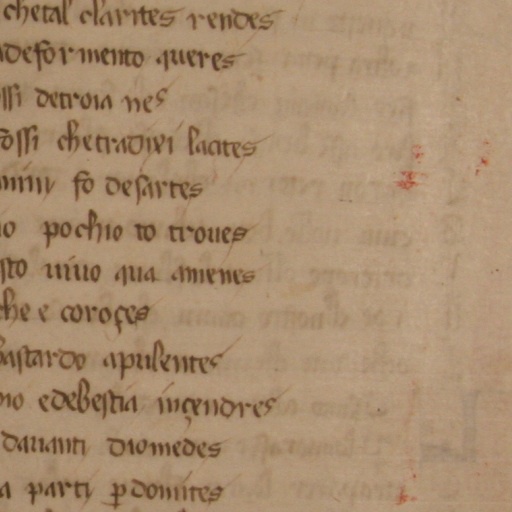 chetal clarites rendes
deformento queres
ssi detroia nes
fossi chetradixi lacites
fo desartes
pochio to troues
sto uiuo qua amenes
che e coroçes
bastardo apulentes
no edebestia inçendres
dauanti diomedes
a parti p domites